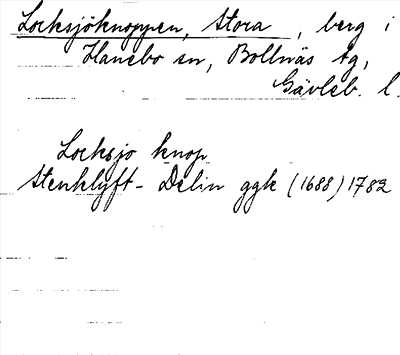 Locksjöknoppen, Stora, berg i
Hanebo sn, Bollnäs tg,
Gävleb. l.
Locksjo knop
Stenklyft - Delin ggk (1688) 1782